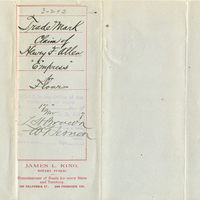 Trade Mark
Claim of
Henry F. Allen
"Empress"
for
Flour
JAMES L. KING,
NOTARY PUBLIC,
Commissioner of Deeds for every State
and Territory.
SAN FRANCISCO, CAL.